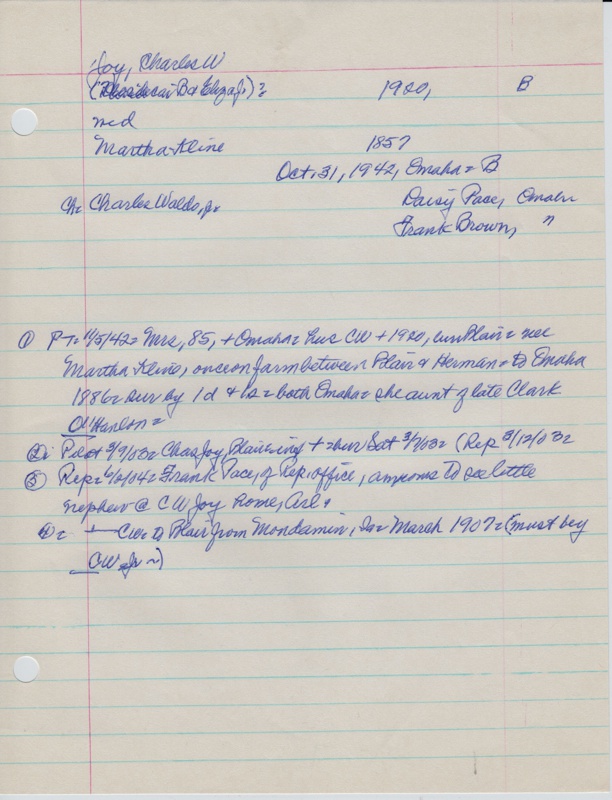 Joy, Charles W
(Bd Eliza Jo)? 1920, B
md
Martha Kline 1857
Oct. 31, 1942, Omaha = B
Ch = Charles Waldo, jr. Daisy Pace, Omaha
Frank Brown, "
① PT = 11/5/42 = Mrs, 85, + Omaha = hus CW + 1920, bur Blair = nee
Martha Kline, once on farm between Blair & Herman = to Omaha
1886 = sur by 1 d & 1s = both Omaha = she aunt of late Clark
O'Hanlon =
Chas Joy, Blair + = bur Sat 3/7/03 = (Rep 3/12/03 =
③ Rep = Frank Pace, of Rep. office, anxious to see little
nephew @ CW Joy home,
CW = to Blair from Mondamin, Ia = March 1907 = (must be
CW Jr ~)